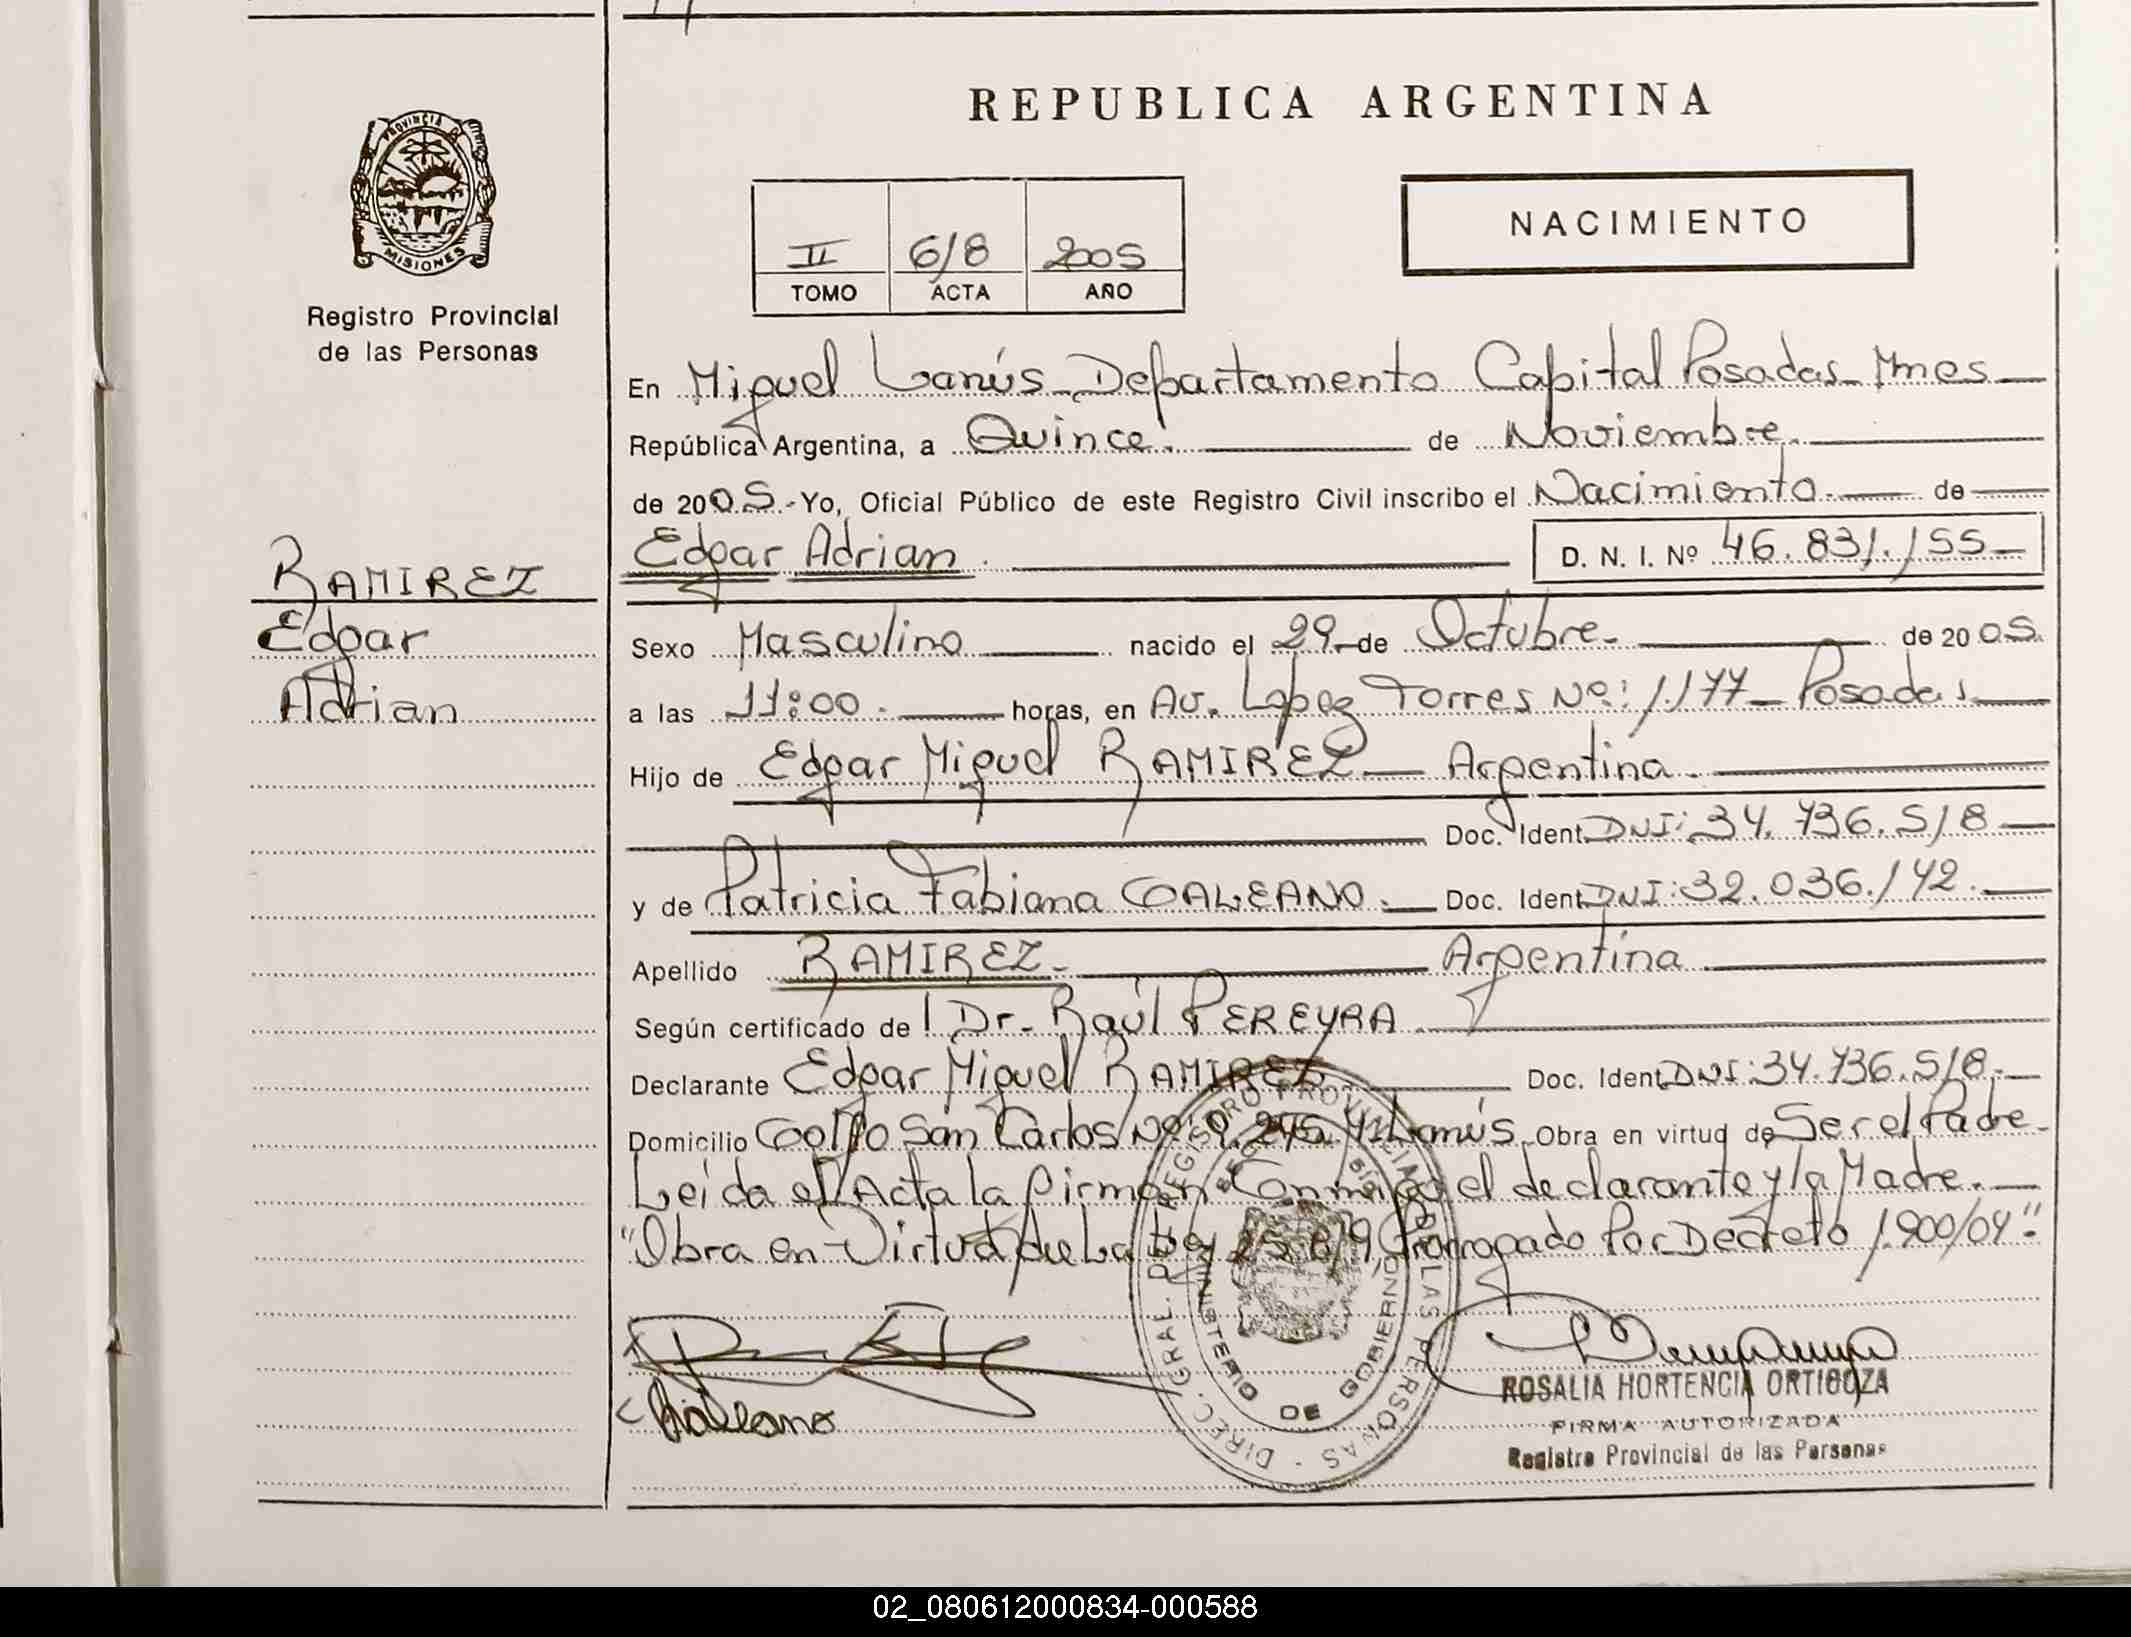 REPUBLICA ARGENTINA
PROVINCIA DE
MISIONES
Registro Provincial
de las Personas
II 618 2005
TOMO ACTA AÑO
NACIMIENTO
En Miguel Lanús_Departamento Capital Posadas_Mnes
República Argentina, a Quince. de Noviembre.
de 2005.-Yo, Oficial Público de este Registro Civil inscribo el Nacimiento. de
Edgar Adrian. D. N. I. Nº 46.831.155_
RAMIREZ
Edgar
Adrian
Sexo Masculino nacido el 29 de Octubre. de 2005.
a las 11:00. horas, en Av. Lopez Torres Nº: 1.177_Posadas
Hijo de Edgar Miguel RAMIREZ Argentina.
Doc. Ident. DNI: 34.736.518
y de Patricia Fabiana GALEANO. Doc. Ident. DNI: 32.036.142.
Apellido RAMIREZ. Argentina
Según certificado de Dr. Raúl PEREYRA
Declarante Edgar Miguel RAMIREZ Doc. Ident. DNI: 34.736.518.
Domicilio Golfo San Carlos Nº 9.245 M. Lanús. Obra en virtud de Ser el Padre
Leída el Acta la firman Conmigo el declarante y la Madre.
"Obra en Virtud de La Ley 25.819 Prorrogado Por Decreto 1.900/04".
DIREC. GRAL. DEL REGISTRO PROVINCIAL DE LAS PERSONAS
MINISTERIO DE GOBIERNO
Galeano
ROSALIA HORTENCIA ORTIGOZA
FIRMA AUTORIZADA
Registro Provincial de las Personas
02_080612000834-000588